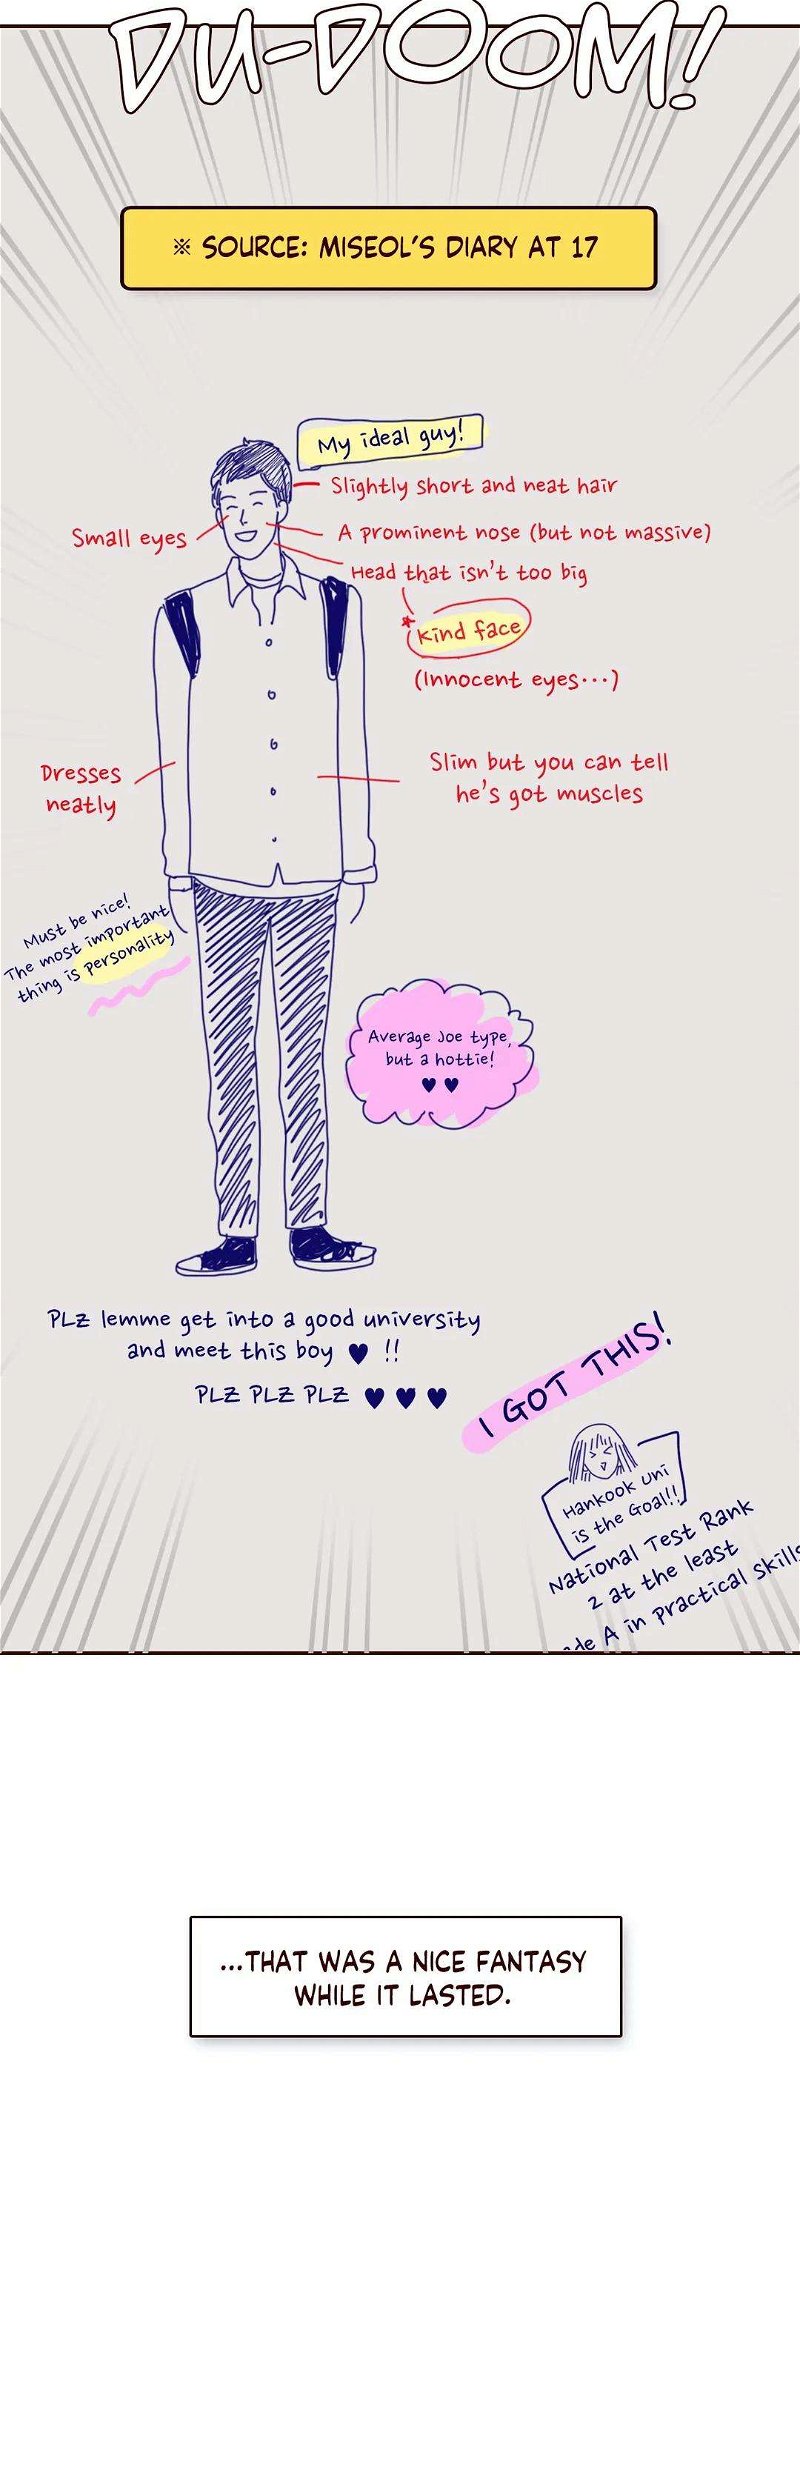 DU-DOOM!
※ SOURCE: MISEOL'S DIARY AT 17
My ideal guy!
Slightly short and neat hair
Small eyes
A prominent nose (but not massive)
Head that isn't too big
Kind face
(Innocent eyes...)
Dresses
neatly
Slim but you can tell
he's got muscles
Must be nice!
The most important
thing is personality
Average Joe type,
but a hottie!
♥ ♥
PLZ lemme get into a good university
and meet this boy ♥ !!
PLZ PLZ PLZ ♥ ♥ ♥
I GOT THIS!
Hankook Uni
is the Goal!!
National Test Rank
2 at the least
A in practical skills
...THAT WAS A NICE FANTASY
WHILE IT LASTED.